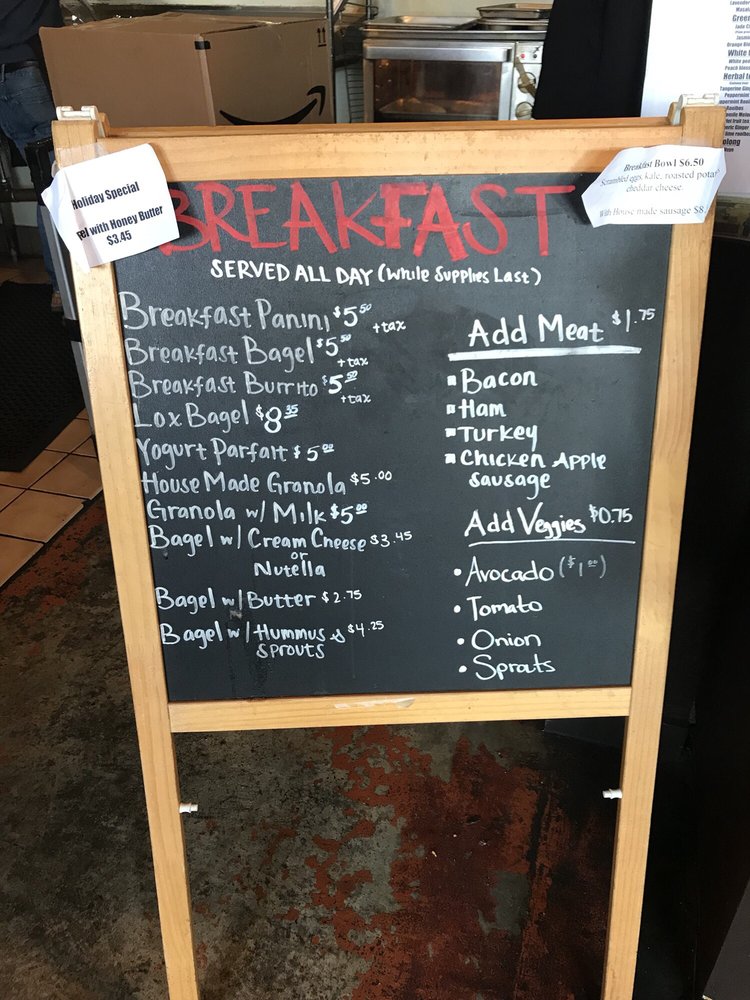 Holiday Special
with Honey Butter
$3.45
Breakfast Bowl $6.50
Scrambled eggs, kale, roasted
cheddar cheese.
With House made sausage
BREAKFAST
SERVED ALL DAY (While Supplies Last)
Breakfast Panini $5.50 +tax
Breakfast Bagel $5.50 +tax
Breakfast Burrito $5.50 +tax
Lox Bagel $8.35
Yogurt Parfait $5.00
House Made Granola $5.00
Granola w/ Milk $5.00
Bagel w/ Cream Cheese $3.45
or
Nutella
Bagel w/ Butter $2.75
Bagel w/ Hummus & $4.25
sprouts
Add Meat $1.75
Bacon
Ham
Turkey
Chicken Apple
sausage
Add Veggies $0.75
• Avocado ($1.00)
• Tomato
• Onion
• Sprouts
Lavender
Green
Jasmine
White
Herbal
Tangerine
Peppermint
Rooibos